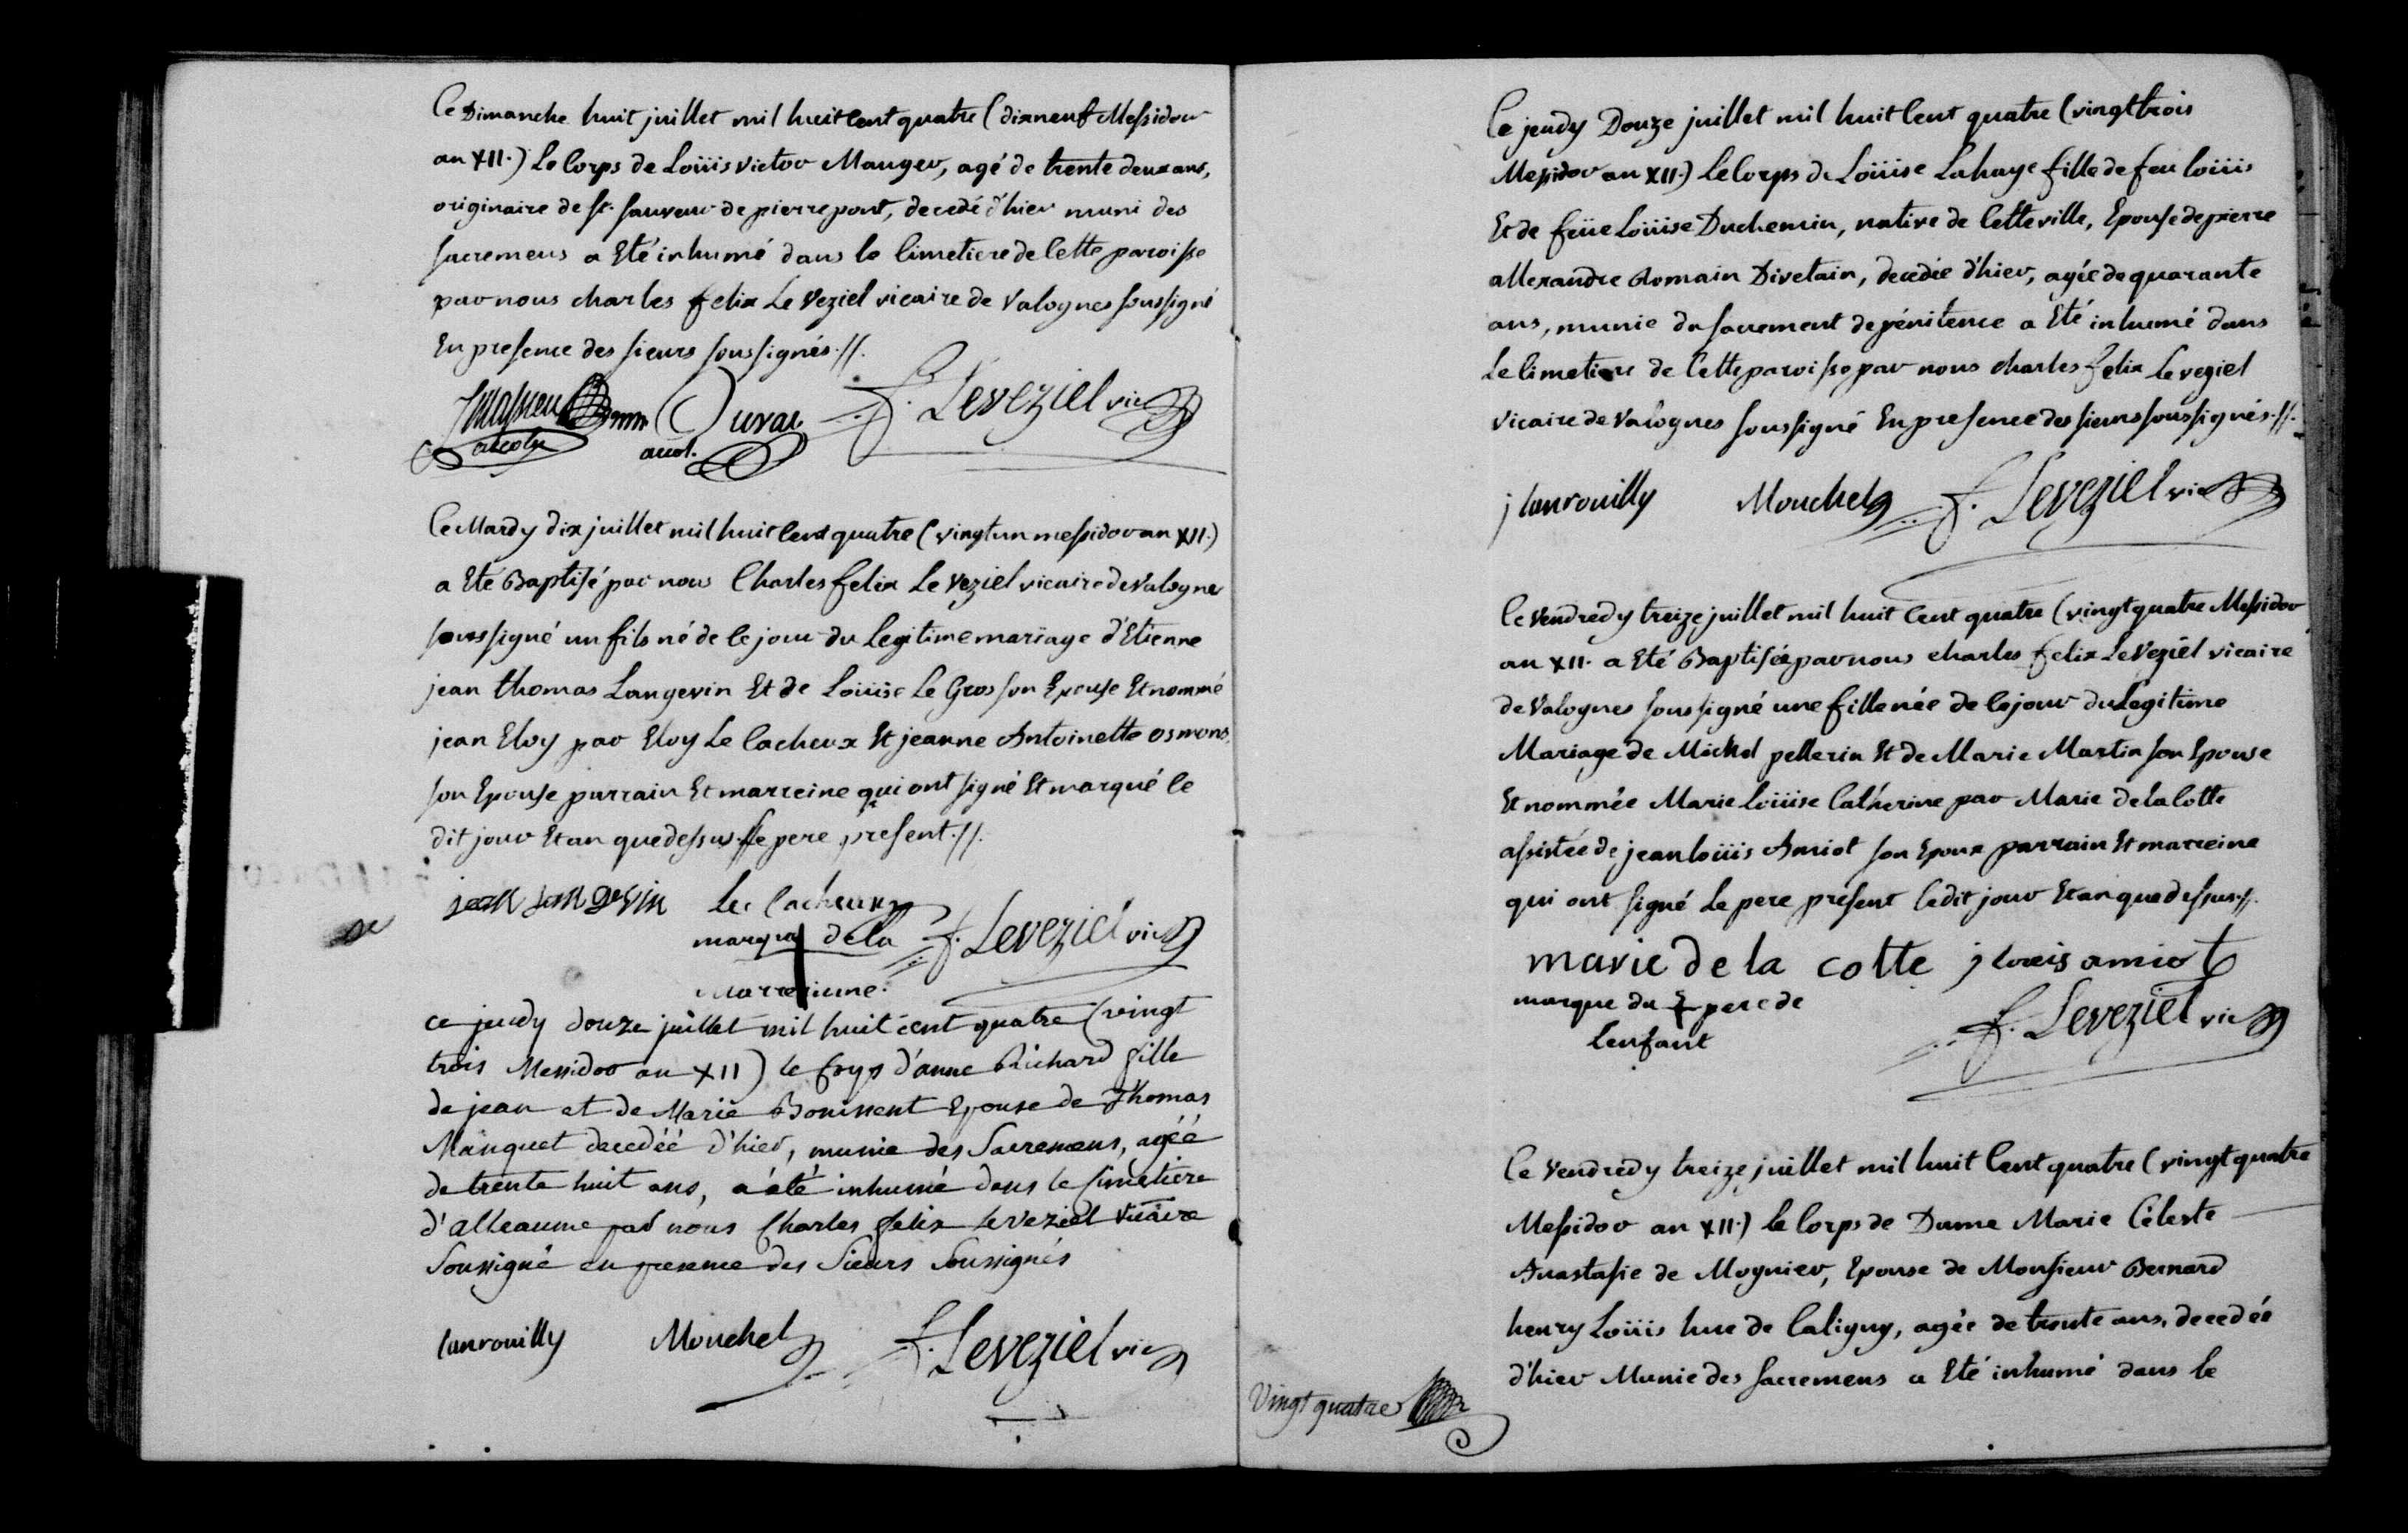 Ce Dimanche huit juillet mil huit Cent quatre (dixneuf Messidor
an XII.) Le Corps de Loüis Victor Mauger, agé de trente deux ans,
originaire de St. Sauveur de pierrepont, decedé d'hier muni des
sacremens a Eté inhumé dans le Cimetiere de Cette paroisse
par nous charles felix Le Veziel vicaire de Valognes soussigné
En presence des sieurs soussignés.//.
Duval
acol.
f. Leveziel vic
Ce Mardy dix juillet mil huit Cent quatre (vingt un messidor an XII.)
a Eté Baptisé par nous Charles felix Le Veziel vicaire de Valognes
soussigné un fils né de ce jour du Legitime mariage d'Etienne
jean thomas Langevin Et de Loüise Le Gros son Epouse Et nommé
jean Eloy par Eloy Le Cacheux Et jeanne Antoinette osmons
son Epouse parrain Et marreine qui ont signé Et marqué le
dit jour Et an que dessus. Le pere present.//.
jean langevin Le Cacheux
marque de la f. Leveziel vic
Marreinne.
ce jeudy douze juillet mil huit cent quatre (vingt
trois Messidor an XII) le corps d'anne Richard fille
de jean et de Marie Bonissent Epouse de Thomas
Manquet decedéé d'hier, munie des Sacremens, agéé
de trente huit ans, a été inhumé dans le Cimetiere
d'alleaume par nous Charles felix leveziel vicaire
Soussigné en presence des Sieurs Soussignés
lanrouilly Mouchel f. Leveziel vic
Ce jeudy Douze juillet mil huit Cent quatre (vingt trois
Messidor an XII.) Le Corps de Loüise Lahaye fille de feu loüis
Et de feüe Loüise Duchemin, native de Cette ville, Epouse de pierre
allexandre Romain Divetain, decedée d'hier, agée de quarante
ans, munie du sacrement de pénitence a Eté inhumé dans
Le Cimetiere de Cette paroisse par nous charles felix Le veziel
vicaire de Valognes soussigné En presence des sieurs soussignés.//.
j lanrouilly Mouchel f. Leveziel vic
Ce Vendredy treize juillet mil huit Cent quatre (vingt quatre Messidor
an XII. a Eté Baptisée par nous charles felix Le Veziel vicaire
de Valognes soussigné une fille née de ce jour du Legitime
Mariage de Michel pellerin Et de Marie Martin son Epouse
Et nommée Marie Loüise Catherine par Marie de la Cotte
assistée de jean loüis Amiot son Epoux parrain Et marreine
qui ont signé Le pere present Ledit jour Et an que dessus.//.
marie de la cotte j louis amiot
marque du pere de
Lenfant
f. Leveziel vic
Ce Vendredy treize juillet mil huit Cent quatre (vingt quatre
Messidor an XII.) le Corps de Dame Marie Céleste
Anastasie de Mogniev, Epouse de Monsieur Bernard
henry Loüis hue de Caligny, agée de trente ans, decedée
d'hier Munie des sacremens a Eté inhumé dans le
Vingt quatre